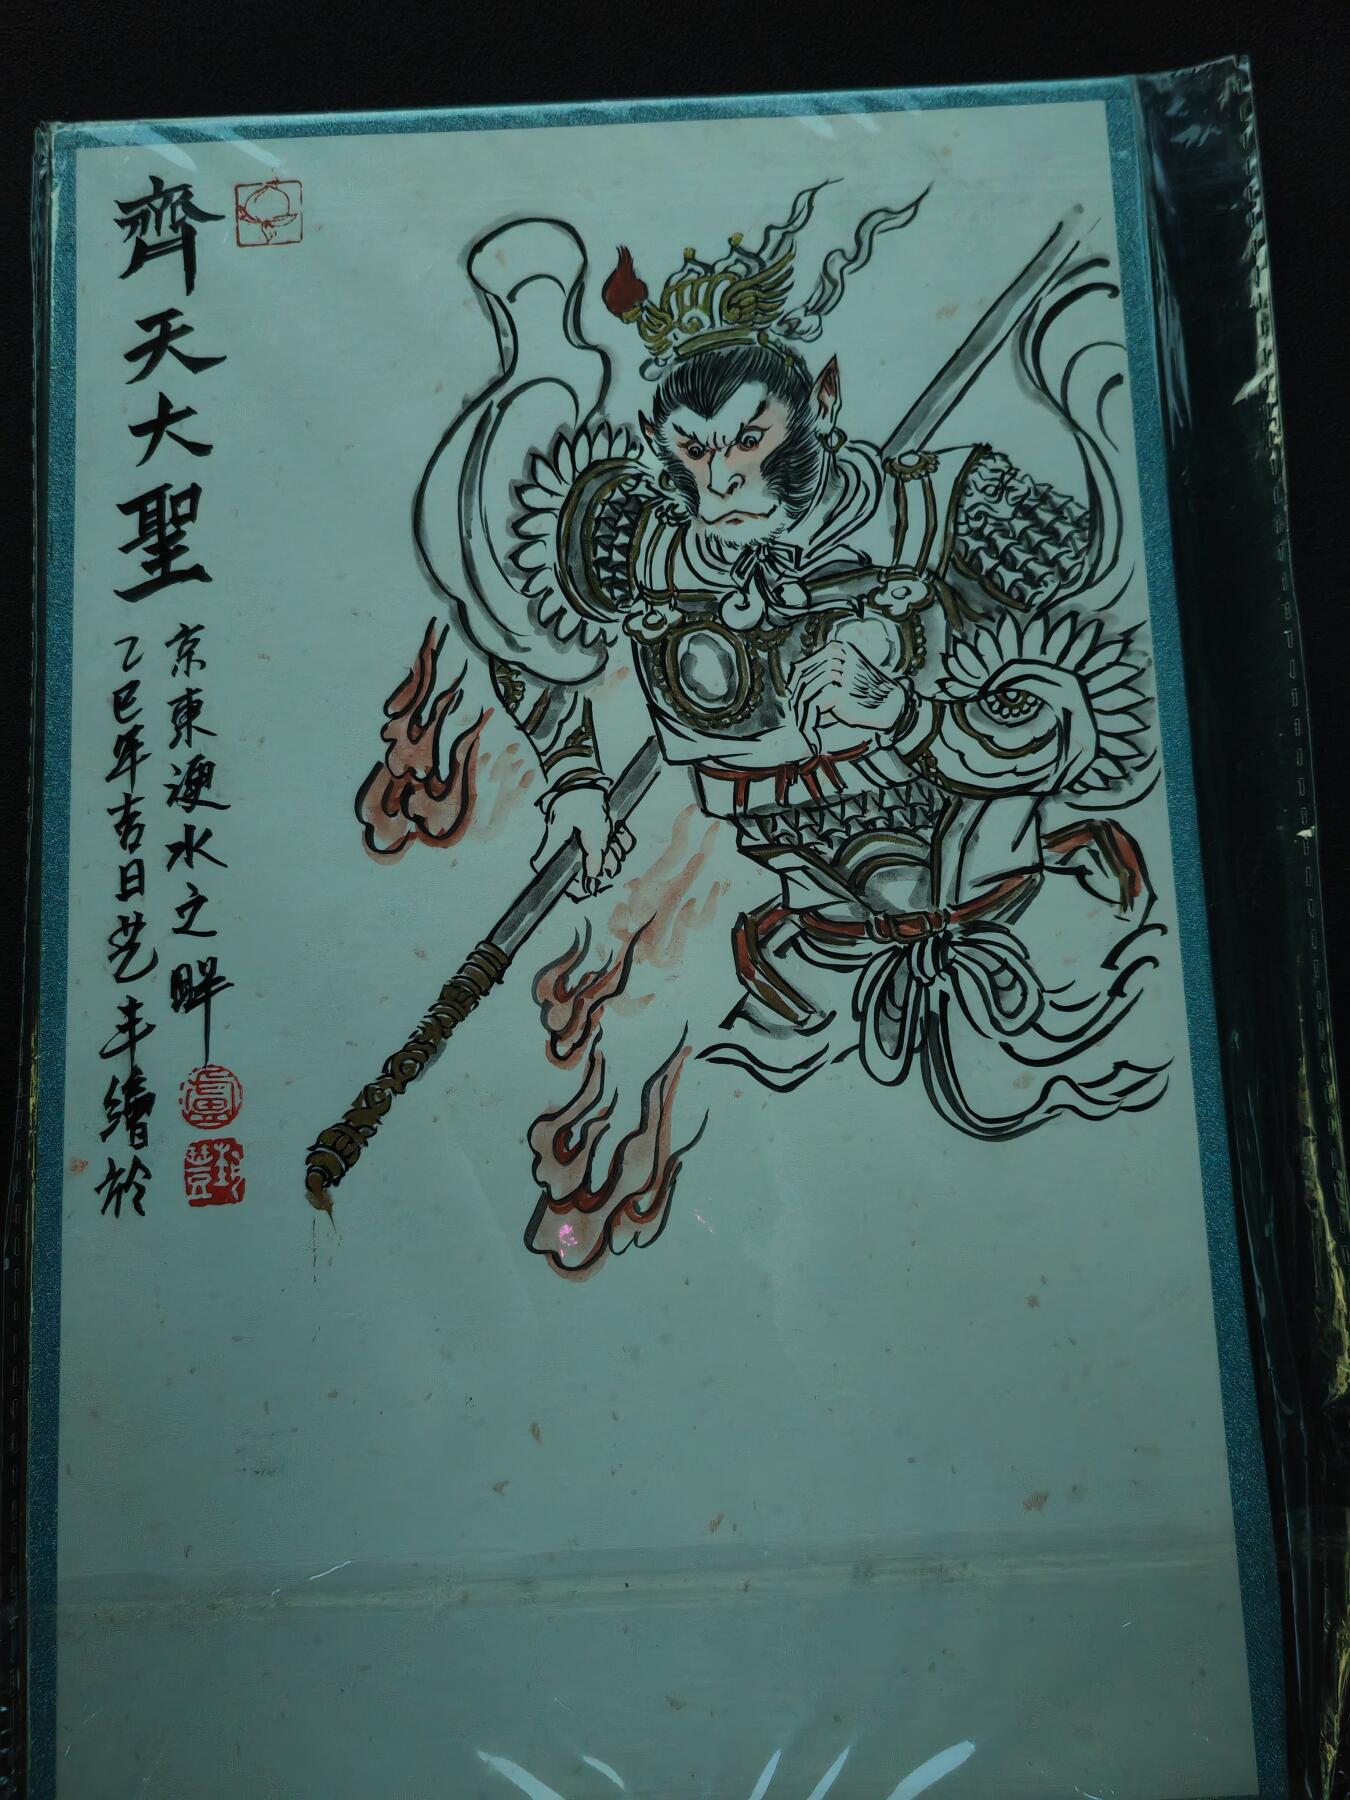 齊天大聖
乙巳年吉日艺丰繪於
京東浭水之畔
盧